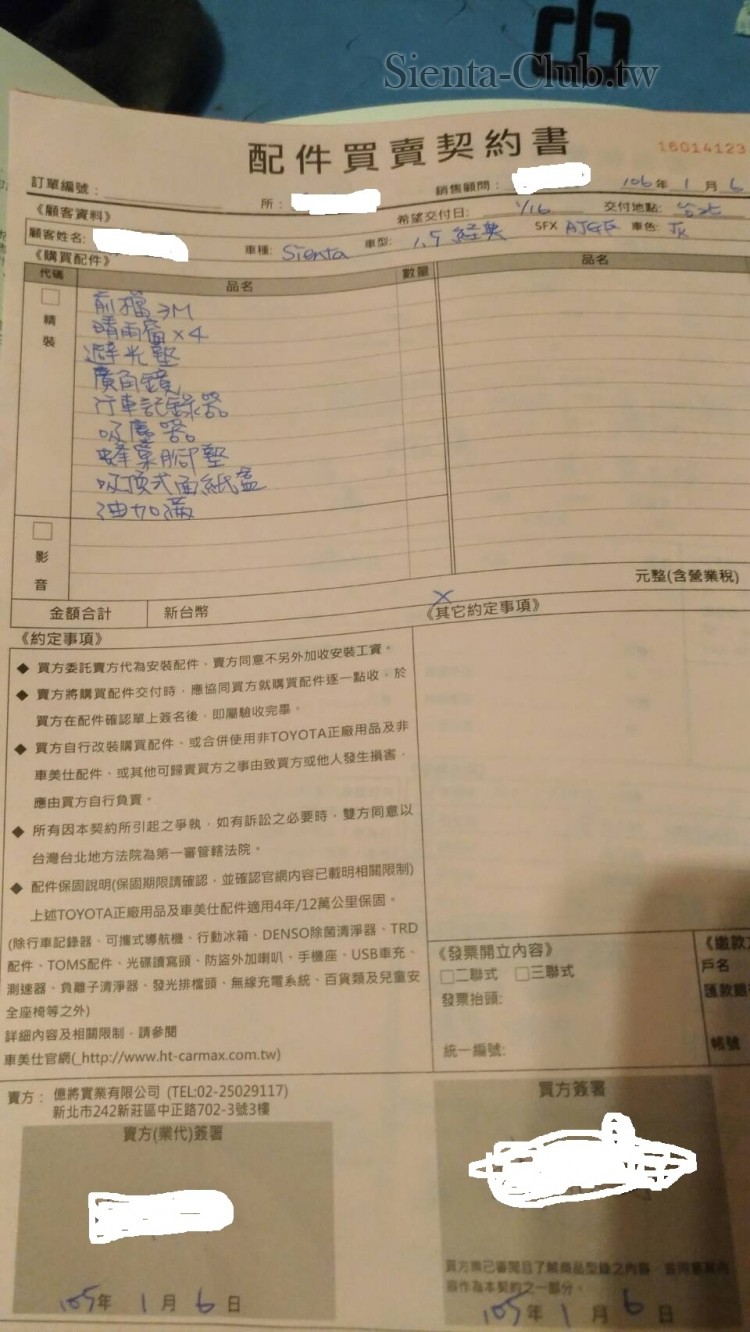 Sienta-Club.tw
配件買賣契約書
16014123
訂單編號：
所：
銷售顧問：
106年 1 月 6
《顧客資料》
希望交付日: 1/16 交付地點:
顧客姓名: 車種: Sienta 車型: 1.5 經典 SFX 車色:
《購買配件》
代碼 品名 數量 品名
精裝
前檔3M
晴雨窗×4
避光墊
廣角鏡
行車記錄器
吸塵器
蜂巢腳墊
吸頂式面紙盒
油加滿
影音
元整(含營業稅)
金額合計 新台幣
X
《約定事項》
《其它約定事項》
◆ 買方委託賣方代為安裝配件，賣方同意不另外加收安裝工資。
◆ 賣方將購買配件交付時，應協同買方就購買配件逐一點收，於
買方在配件確認單上簽名後，即屬驗收完畢。
◆ 買方自行改裝購買配件、或合併使用非TOYOTA正廠用品及非
車美仕配件，或其他可歸責買方之事由致買方或他人發生損害，
應由買方自行負責。
◆ 所有因本契約所引起之爭執，如有訴訟之必要時，雙方同意以
台灣台北地方法院為第一審管轄法院。
◆ 配件保固說明(保固期限請確認，並確認官網內容已載明相關限制)
上述TOYOTA正廠用品及車美仕配件適用4年/12萬公里保固。
(除行車記錄器、可攜式導航機、行動冰箱、DENSO除菌清淨器、TRD
配件、TOMS配件、光碟讀寫頭、防盜外加喇叭、手機座、USB車充、
測速器、負離子清淨器、發光排檔頭、無線充電系統、百貨類及兒童安
全座椅等之外)
詳細內容及相關限制，請參閱
車美仕官網(_http://www.ht-carmax.com.tw)
《發票開立內容》
□二聯式 □三聯式
發票抬頭:
統一編號:
《繳款
戶名
匯款銀
帳號
賣方： 億將實業有限公司 (TEL:02-25029117)
新北市242新莊區中正路702-3號3樓
賣方(業代)簽署
買方簽署
買方業已審閱且了解商品型錄之內容，並同意其內
容作為本契約之一部分。
105年 1 月 6 日
105年 1 月 6 日